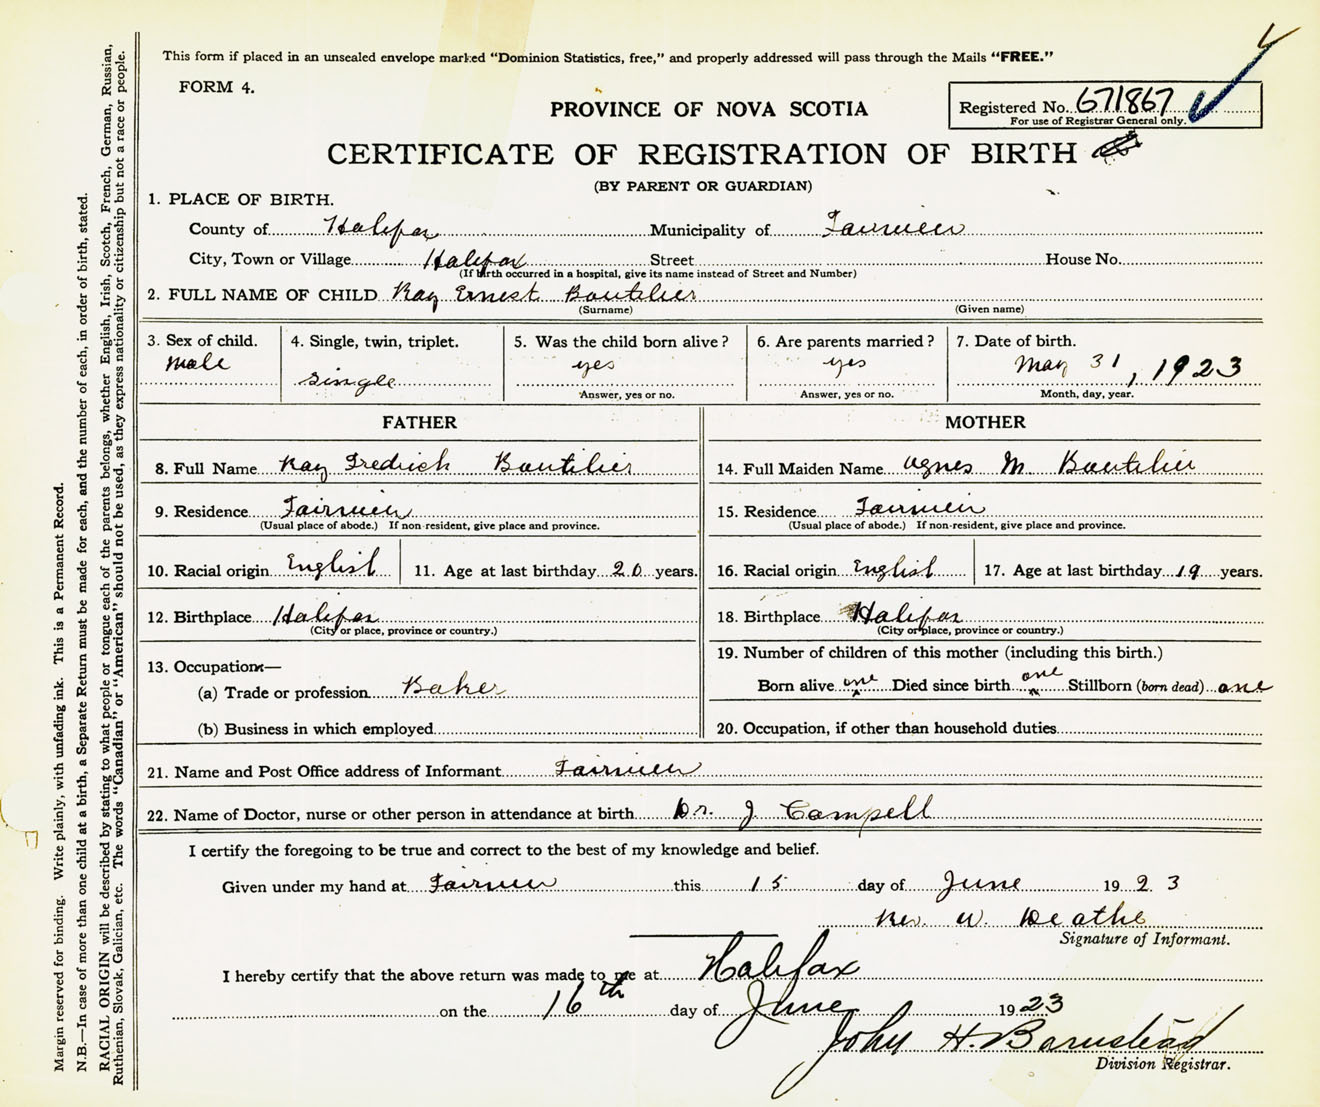 This form if placed in an unsealed envelope marked "Dominion Statistics, free," and properly addressed will pass through the Mails "FREE."
FORM 4.
PROVINCE OF NOVA SCOTIA
Registered No. 671867
For use of Registrar General only.
CERTIFICATE OF REGISTRATION OF BIRTH
(BY PARENT OR GUARDIAN)
1. PLACE OF BIRTH.
County of Halifax Municipality of Fairview
City, Town or Village Halifax Street House No.
(If birth occurred in a hospital, give its name instead of Street and Number)
2. FULL NAME OF CHILD Ray Ernest Boutilier
(Surname) (Given name)
3. Sex of child. 4. Single, twin, triplet. 5. Was the child born alive? 6. Are parents married? 7. Date of birth.
male single yes yes May 31, 1923
Answer, yes or no. Answer, yes or no. Month, day, year.
FATHER MOTHER
8. Full Name Ray Fredrick Boutilier 14. Full Maiden Name Agnes M. Boutilier
9. Residence Fairview 15. Residence Fairview
(Usual place of abode.) If non-resident, give place and province. (Usual place of abode.) If non-resident, give place and province.
10. Racial origin English 11. Age at last birthday 20 years. 16. Racial origin English 17. Age at last birthday 19 years.
12. Birthplace Halifax 18. Birthplace Halifax
(City or place, province or country.) (City or place, province or country.)
13. Occupation:— 19. Number of children of this mother (including this birth.)
(a) Trade or profession Baker Born alive one Died since birth one Stillborn (born dead) one
(b) Business in which employed 20. Occupation, if other than household duties
21. Name and Post Office address of Informant Fairview
22. Name of Doctor, nurse or other person in attendance at birth Dr. J Campell
I certify the foregoing to be true and correct to the best of my knowledge and belief.
Given under my hand at Fairview this 15 day of June 1923
Rev. W. Deathe
Signature of Informant.
I hereby certify that the above return was made to me at Halifax
on the 16th day of June 1923
John H. Barnstead
Division Registrar.
Margin reserved for binding. Write plainly, with unfading ink. This is a Permanent Record.
N.B.—In case of more than one child at a birth, a Separate Return must be made for each, and the number of each, in order of birth, stated.
RACIAL ORIGIN will be described by stating to what people or tongue each of the parents belongs, whether English, Irish, Scotch, French, German, Russian,
Ruthenian, Slovak, Galician, etc. The words "Canadian" or "American" should not be used, as they express nationality or citizenship but not a race or people.